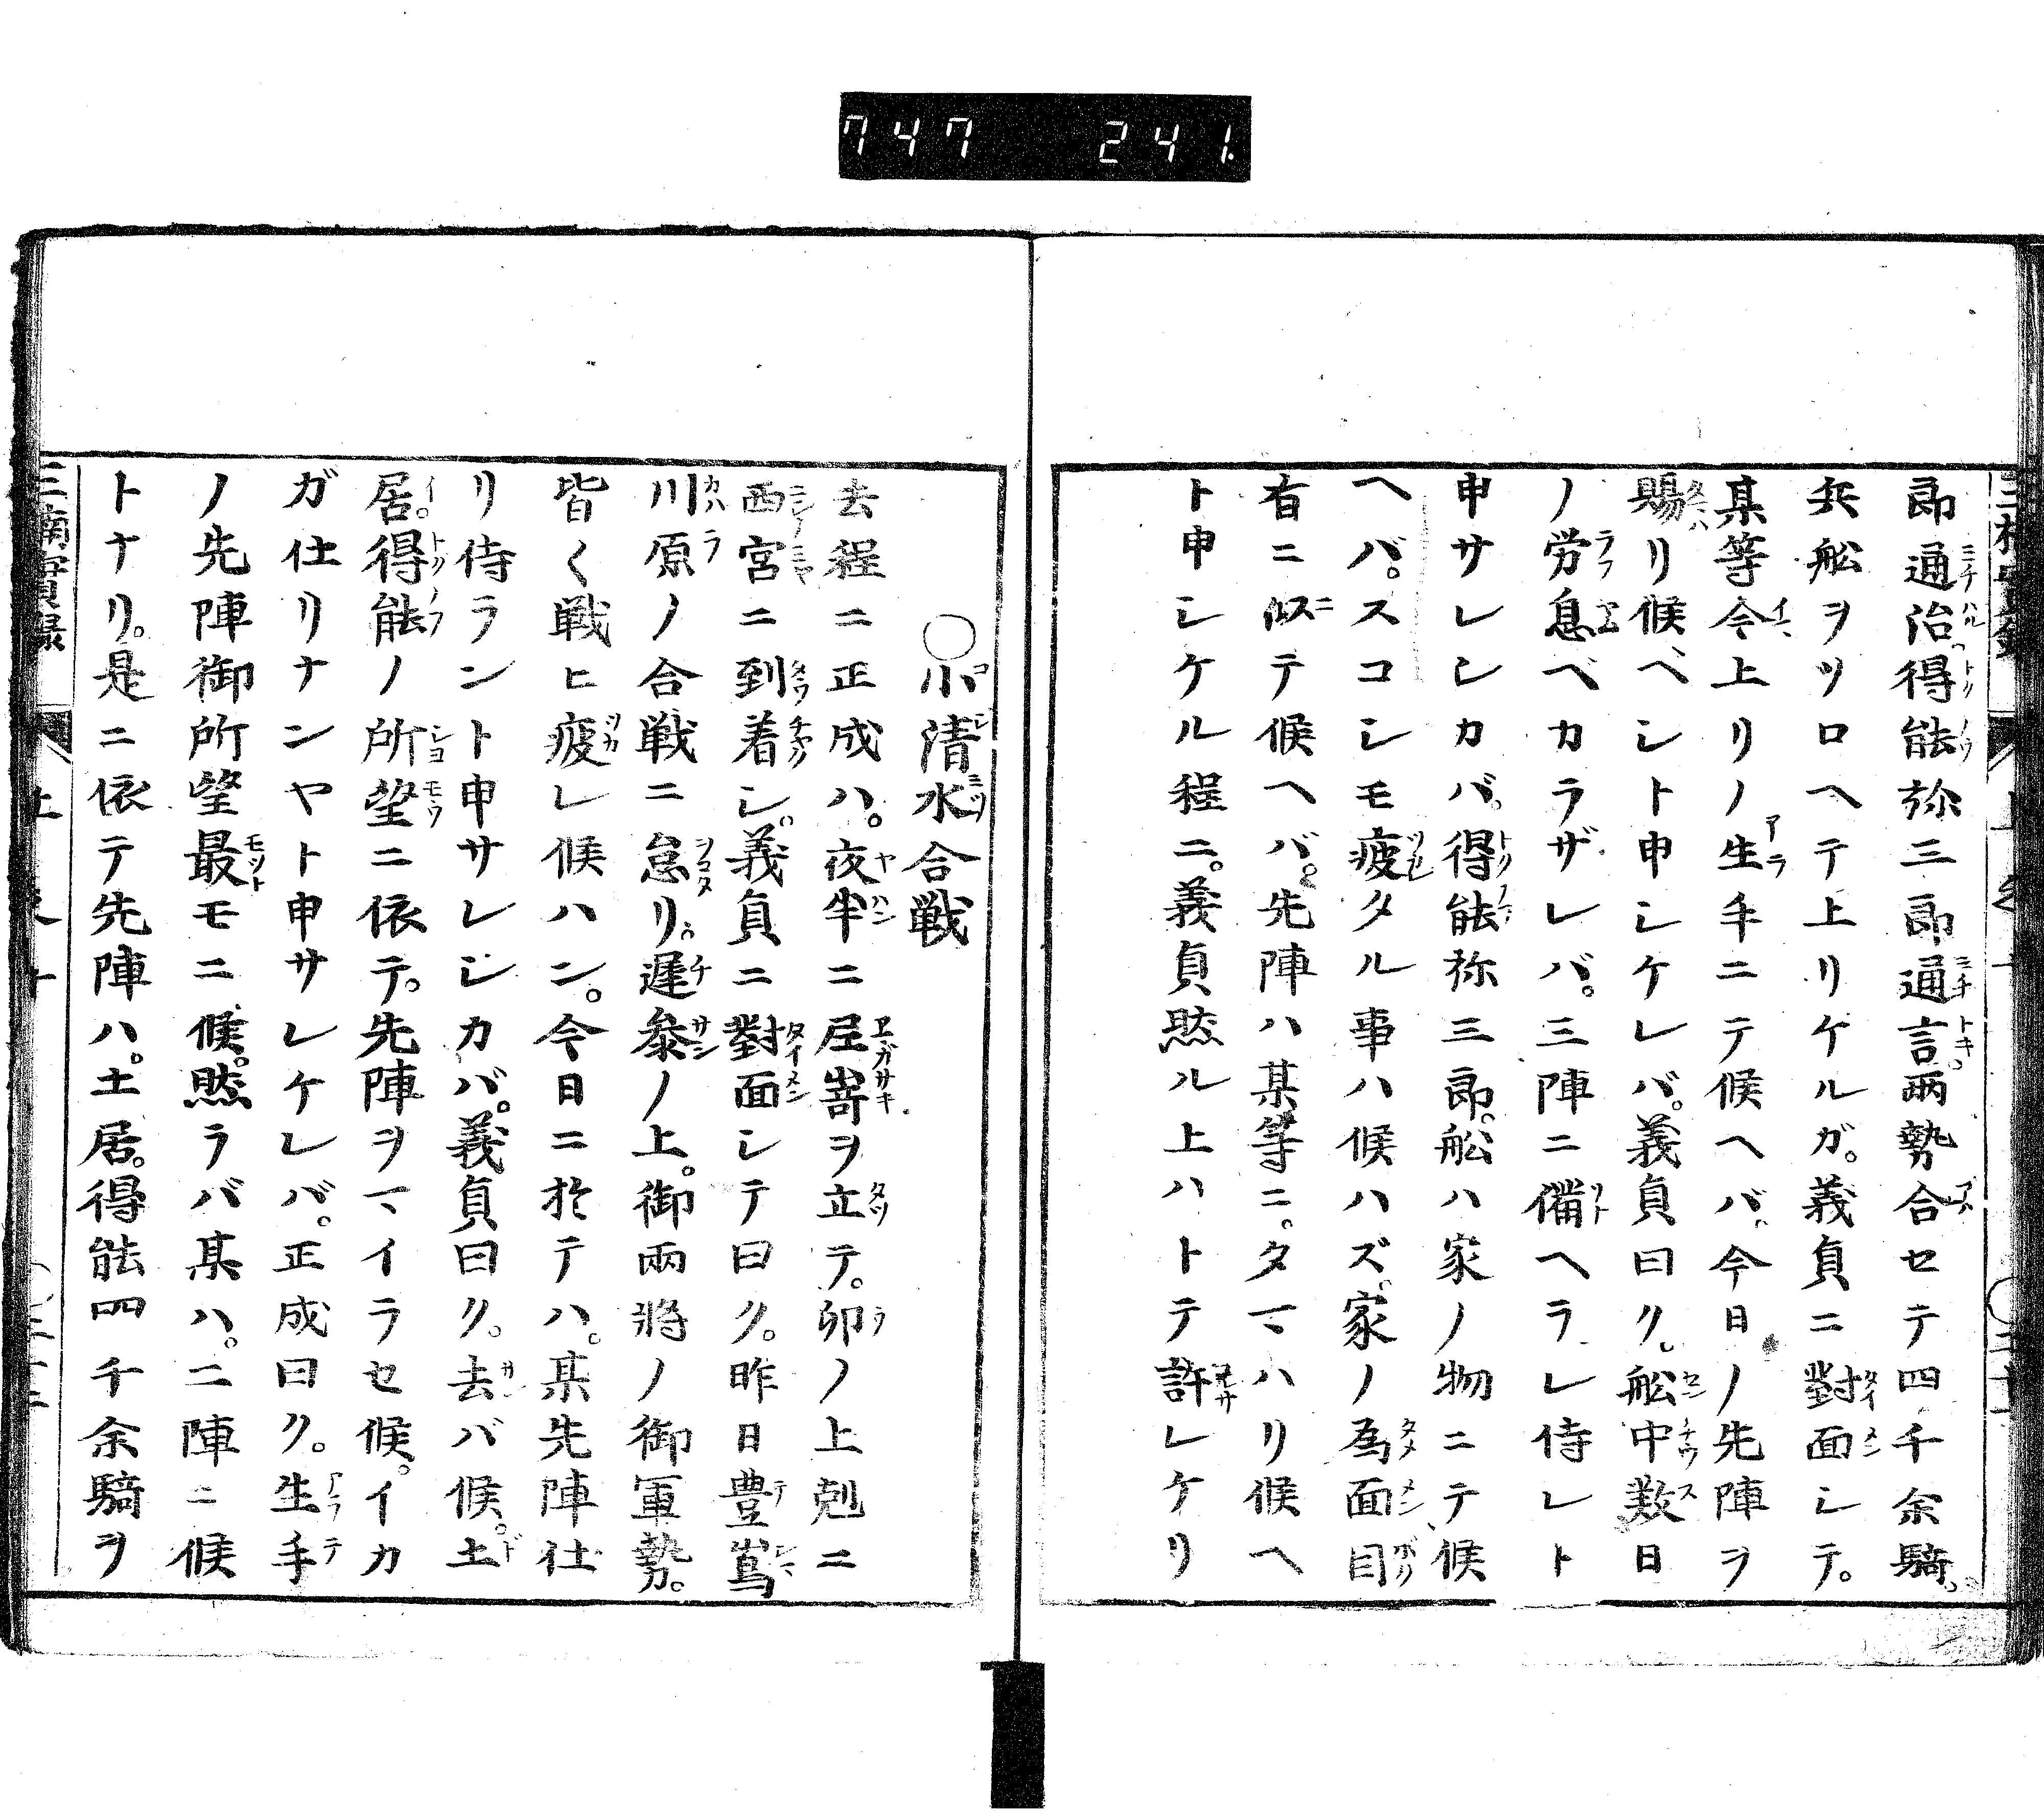 747 241.
郎通治得能弥三郎通言。両勢合セテ四千余騎。
兵舩ヲソロヘテ上リケルガ。義貞ニ對面シテ。
某等今上リノ生手ニテ候ヘバ。今日ノ先陣ヲ
賜リ候ベシト申シケレバ。義貞曰ク。舩中数日
ノ労息ベカラザレバ。三陣ニ備ヘラレ侍レト
申サレシカバ。得能弥三郎。舩ハ家ノ物ニテ候
ヘバ。スコシモ疲タル事ハ候ハズ。家ノ為面目
有ニ似テ候ヘバ。先陣ハ某等ニ。タマハリ候ヘ
ト申シケル程ニ。義貞然ル上ハトテ許レケリ
○小清水合戦
去程ニ正成ハ。夜半ニ尼嵜ヲ立テ。卯ノ上剋ニ
西宮ニ到着シ。義貞ニ對面シテ曰ク。昨日豊嶌
川原ノ合戦ニ怠リ。遅參ノ上。御兩將ノ御軍勢。
皆く戦ヒ疲レ候ハン。今日ニ於テハ。某先陣仕
リ侍ラント申サレシカバ。義貞曰ク。去バ候。土
居。得能ノ所望ニ依テ。先陣ヲマイラセ候。イカ
ガ仕リナンヤト申サレケレバ。正成曰ク。生手
ノ先陣御所望最モニ候。然ラバ某ハ。二陣ニ候
トナリ。是ニ依テ先陣ハ。土居。得能四千余騎ヲ